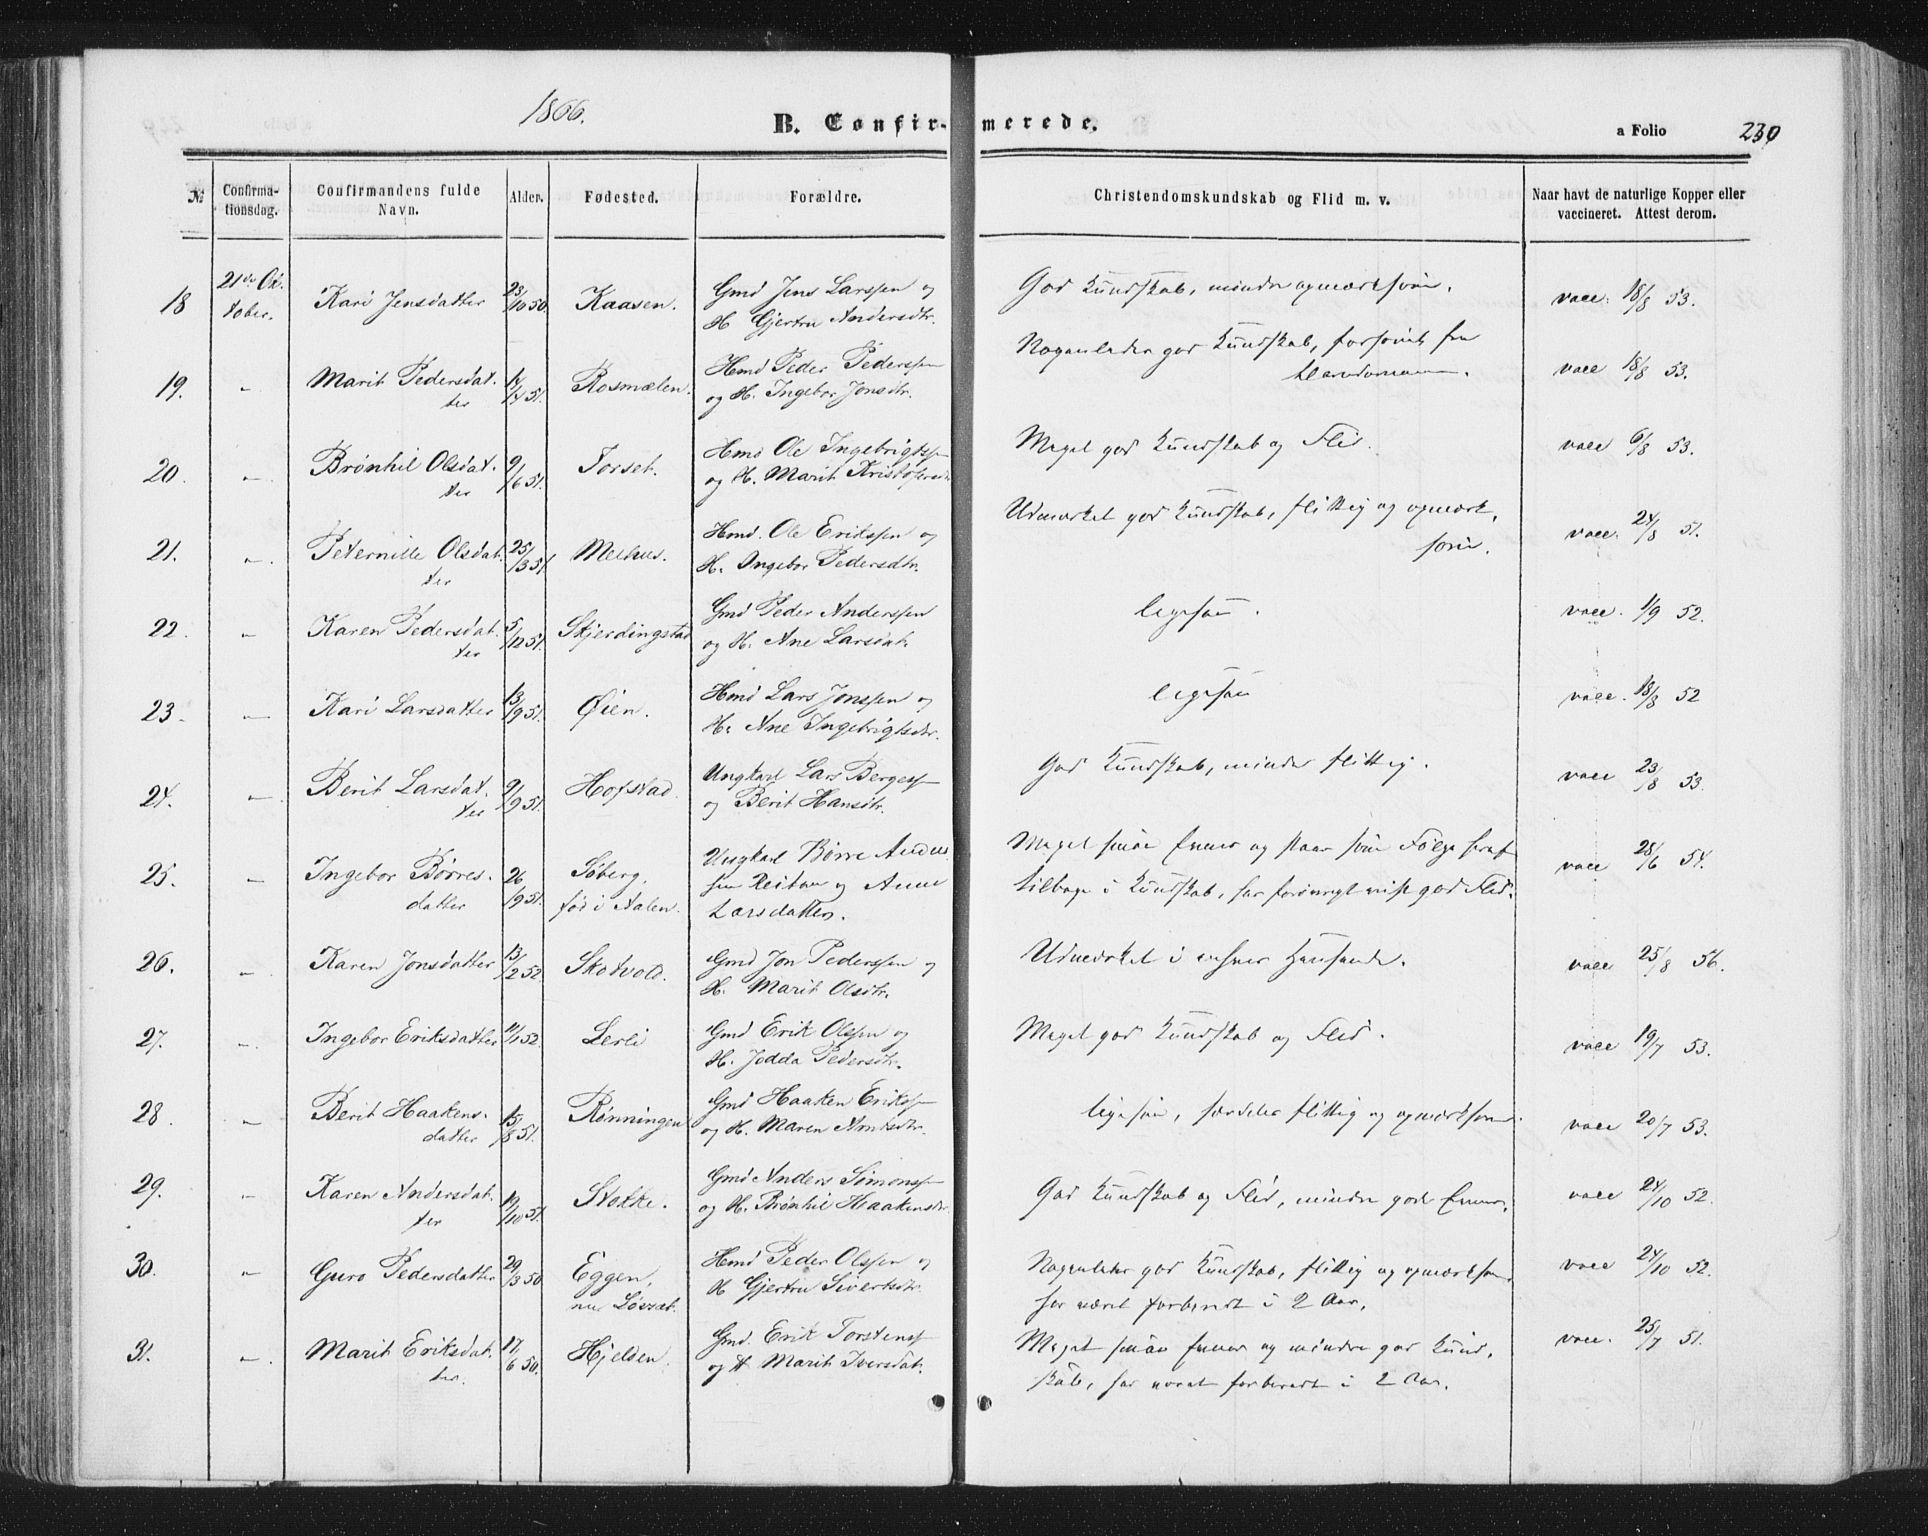 1866.
B. Confirmerede.
a Folio 230
№
Confirmationsdag.
Confirmandens fulde Navn.
Alder.
Fødested.
Forældre.
Christendomskundskab og Flid m. v.
Naar havt de naturlige Kopper eller vaccineret. Attest derom.
18 21de Oktober. Kari Jensdatter 23/10 50. Kaasen. Gmd Jens Larssen og God Kundskab, mindre opmærksom. vacc. 18/8 53.
H Gjertru Andersdtr.
19. " Marit Pedersdatter 14/4 51. Rosmælen. Hmd Peder Pederssen Nogenlunde god Kundskab, forsømt fra vacc 18/8 53.
og H. Ingebor Jonsdtr. Barndommen.
20. " Brønhil Olsdatter 9/6 51. Torset. Hmd Ole Ingebrigtssen Meget god Kundskab og Flid. vacc 6/8 53.
og H. Marit Kristofersdtr
21. " Peternille Olsdatter 25/3 51. Melhus. Hmd. Ole Erikssen og Udmærket god Kundskab, flittig og opmærk- vacc. 24/8 51.
H. Ingebor Pedersdtr. som.
22. " Karen Pedersdatter 5/12 51. Skjerdingstad Gmd Peder Anderssen ligesaa. vacc. 1/9 52.
og H. Ane Larsdat.
23. " Kari Larsdatter 13/9 51. Øien. Hmd Lars Jonssen og ligesaa vacc. 18/8 52
H. Ane Ingebrigtsdtr.
24. " Berit Larsdatter 9/9 51. Hofstad. Ungkarl Lars Bergess God Kundskab, mindre flittig. vacc 23/8 53.
og Berit Hansdtr.
25. " Ingebor Børresdatter 26/9 51. Søberg, Ungkarl Børre Anders Meget smaa Evner og staar som Følge heraf vacc 28/6 54.
fød i Aalen. sen Reitan og Anne tilbage i Kundskab, har forøvrigt vist god Flid.
Larsdatter.
26. " Karen Jonsdatter 13/2 52. Skotvold. Gmd Jon Pederssen og Udmærket i enhver Henseende. vacc 25/8 56.
H. Marit Olsdtr.
27. " Ingebor Eriksdatter 11/1 52. Lerli Gmd Erik Olssen og Meget god Kundskab og Flid. vacc 19/7 53.
H. Jodda Pedersdtr.
28 " Berit Haakensdatter 15/8 51. Rønningen Gmd Haaken Erikss ligesaa, særdeles flittig og opmærksom. vacc 20/7 53.
og H. Maren Arntsdtr.
29. " Karen Andersdatter 19/10 51. Stokke. Gmd Anders Simonss God Kundskab og Flid, mindre gode Evner. vacc 24/10 52.
og H. Brønhil Haakensdtr.
30. " Guro Pedersdatter 29/3 50 Eggen, Hmd Peder Olssen og Nogenlunde god Kundskab, flittig og opmærksom, vacc 24/10 52.
nu Løvset. H Gjertru Sivertsdtr. har været forberedt i 2 Aar.
31. " Marit Eriksdatter. 17/6 50. Hjelden. Gmd. Erik Torstenss Meget smaa Evner og mindre god Kund- vacc. 25/7 51.
og H Marit Iversdat. skab, har været forberedt i 2 Aar.